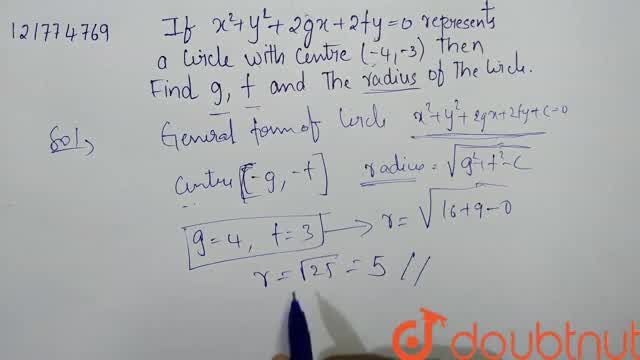 121774769
If x²+y²+2gx+2fy=0 represents
a Circle with Centre (-4,-3) then
Find g, f and The radius of The Circle.
Sol,
General form of Circle x²+y²+2gx+2fy+c=0
Centre [-g,-f] radius = √g²+f²-c
g=4, f=3 → r= √16+9-0
r=√25=5 //
doubtnut